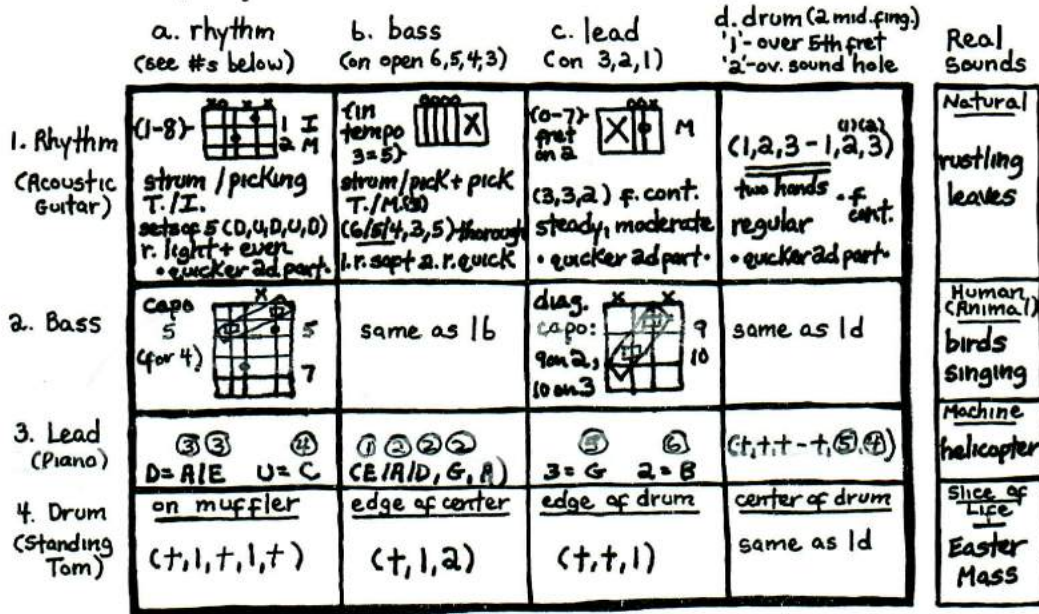 a. rhythm
(see #s below)
b. bass
(on open 6,5,4,3)
c. lead
(on 3,2,1)
d. drum (2 mid. fing.)
'1'- over 5th fret
'2'- ov. sound hole
Real
Sounds
1. Rhythm
(Acoustic
Guitar)
(1-8)-
xo x x
1 I
2 M
strum / picking
T./I.
sets of 5 (D,U,D,U,D)
r. light + even
• quicker 2d part •
(in
tempo
3=5)
oooo
X
strum/pick + pick
(6/5/4,3,5)-thorough
1. r. soft 2. r. quick
(0-7)-
fret
on 2
oox
X
M
(3,3,2) f. cont.
steady, moderate
• quicker 2d part •
(1)(2)
(1,2,3 - 1,2,3)
two hands
• f.
cont.
regular
• quicker 2d part •
Natural
rustling
leaves
2. Bass
capo
5
(for 4)
x
5
7
same as 1b
diag.
capo:
9 on 2,
10 on 3
x x
9
10
same as 1d
Human
(Animal)
birds
singing
3. Lead
(Piano)
③ ③ ④
D = A/E U = C
① ② ② ②
(E/A/D, G, A)
⑤ ⑥
3 = G 2 = B
(t,t,t - t,⑤,④)
Machine
helicopter
4. Drum
(Standing
Tom)
on muffler
(t,1,t,1,t)
edge of center
(t,1,2)
edge of drum
(t,t,1)
center of drum
same as 1d
Slice of
Life
Easter
Mass